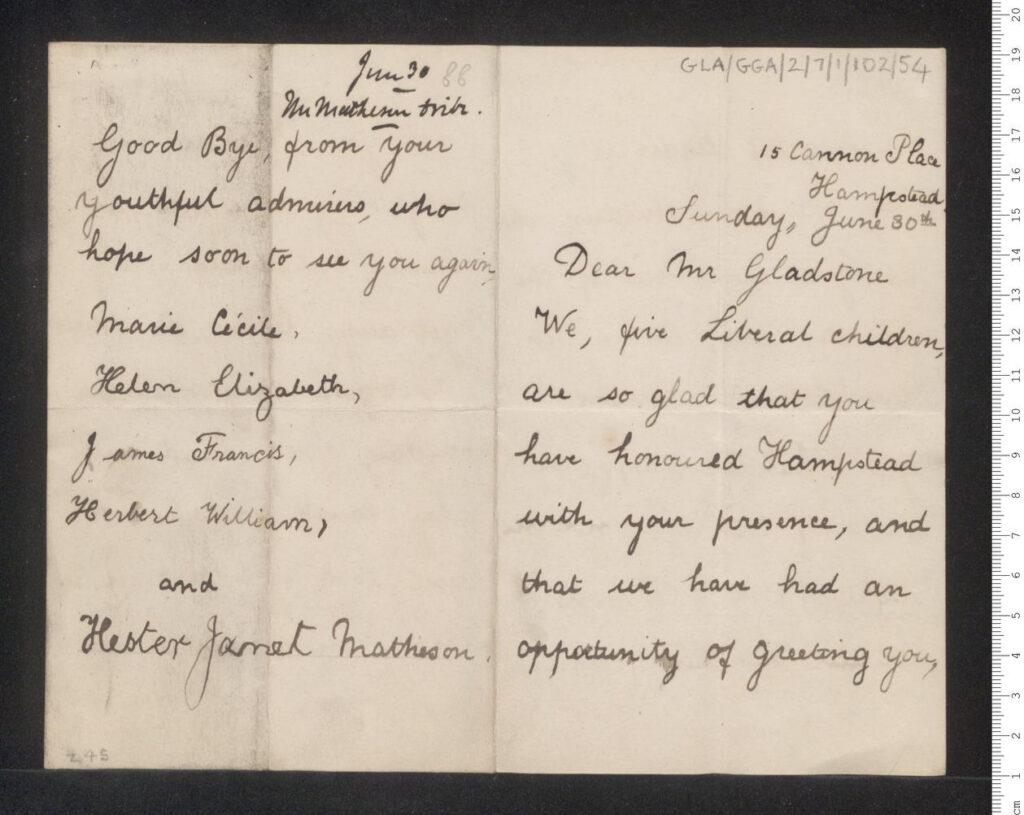 GLA/GGA/2/7/1/102/54
15 Cannon Place
Hampstead.
Sunday, June 30th
Dear Mr Gladstone
We, five Liberal children,
are so glad that you
have honoured Hampstead
with your presence, and
that we have had an
opportunity of greeting you,
Jun 30 88
Good Bye, from your
youthful admirers, who
hope soon to see you again,
Marie Cécile,
Helen Elizabeth,
James Francis,
Herbert William,
and
Hester Janet Matheson.
245
cm 1 2 3 4 5 6 7 8 9 10 11 12 13 14 15 16 17 18 19 20